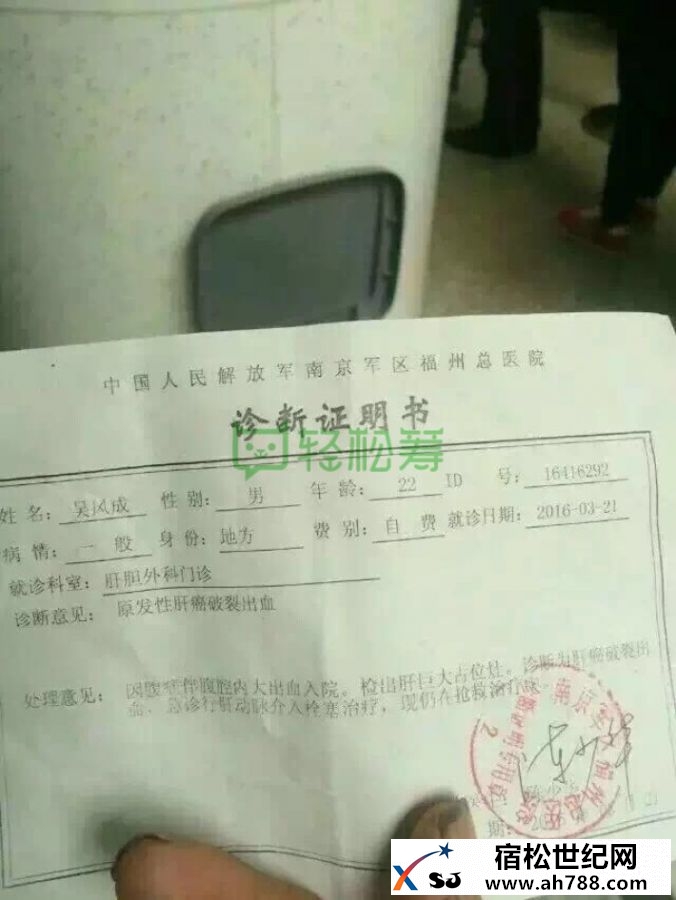 中国人民解放军南京军区福州总医院
诊断证明书
轻松筹
姓名：吴风成 性别：男 年龄：22 ID 号：16416292
病情：一般 身份：地方 费别：自费 就诊日期：2016-03-21
就诊科室：肝胆外科门诊
诊断意见：原发性肝癌破裂出血
处理意见：因腹痛伴腹腔内大出血入院。检出肝巨大占位灶。诊断为肝癌破裂出
血。急诊行肝动脉介入栓塞治疗，现仍在抢救治疗
南京军
福州总医院
2
期：
21
XSJ
宿松世纪网
www.ah788.com